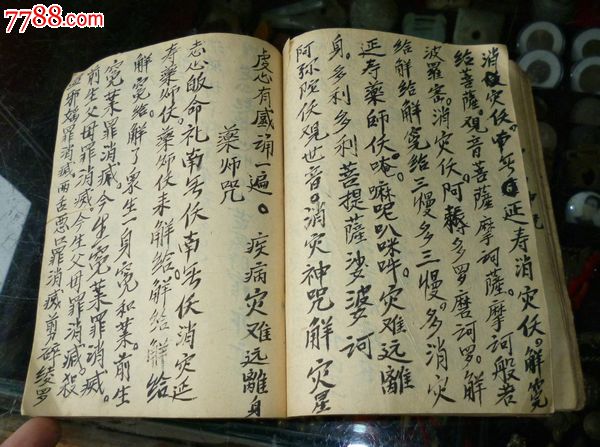 7788.com
消仗灾伏。南无延寿消灾伏。解冤
给菩薩。观音菩薩摩诃薩。摩诃般若
波羅密。消灾伏阿耨多罗磨诃罗。解
给解给解冤给三慢多三慢。多消灾
延寿藥師伏唵。嘛呢叭咪吽。灾难远離
身。多利多利菩提薩娑婆诃
阿弥陀伏观世音。消灾神咒解灾星
虔心有感诵一遍。疾病灾难远離身
藥师咒
志心皈命礼南无伏南无伏消灾延
寿藥师伏。藥师伏来解给。解给解给
解冤给解了众生一身冤和業。前生
冤業罪消滅。今生冤業罪消滅。
前生父母罪消滅。今生父母罪消滅。殺
邪婬罪消滅。两舌恶口罪消滅剪碎綾罗